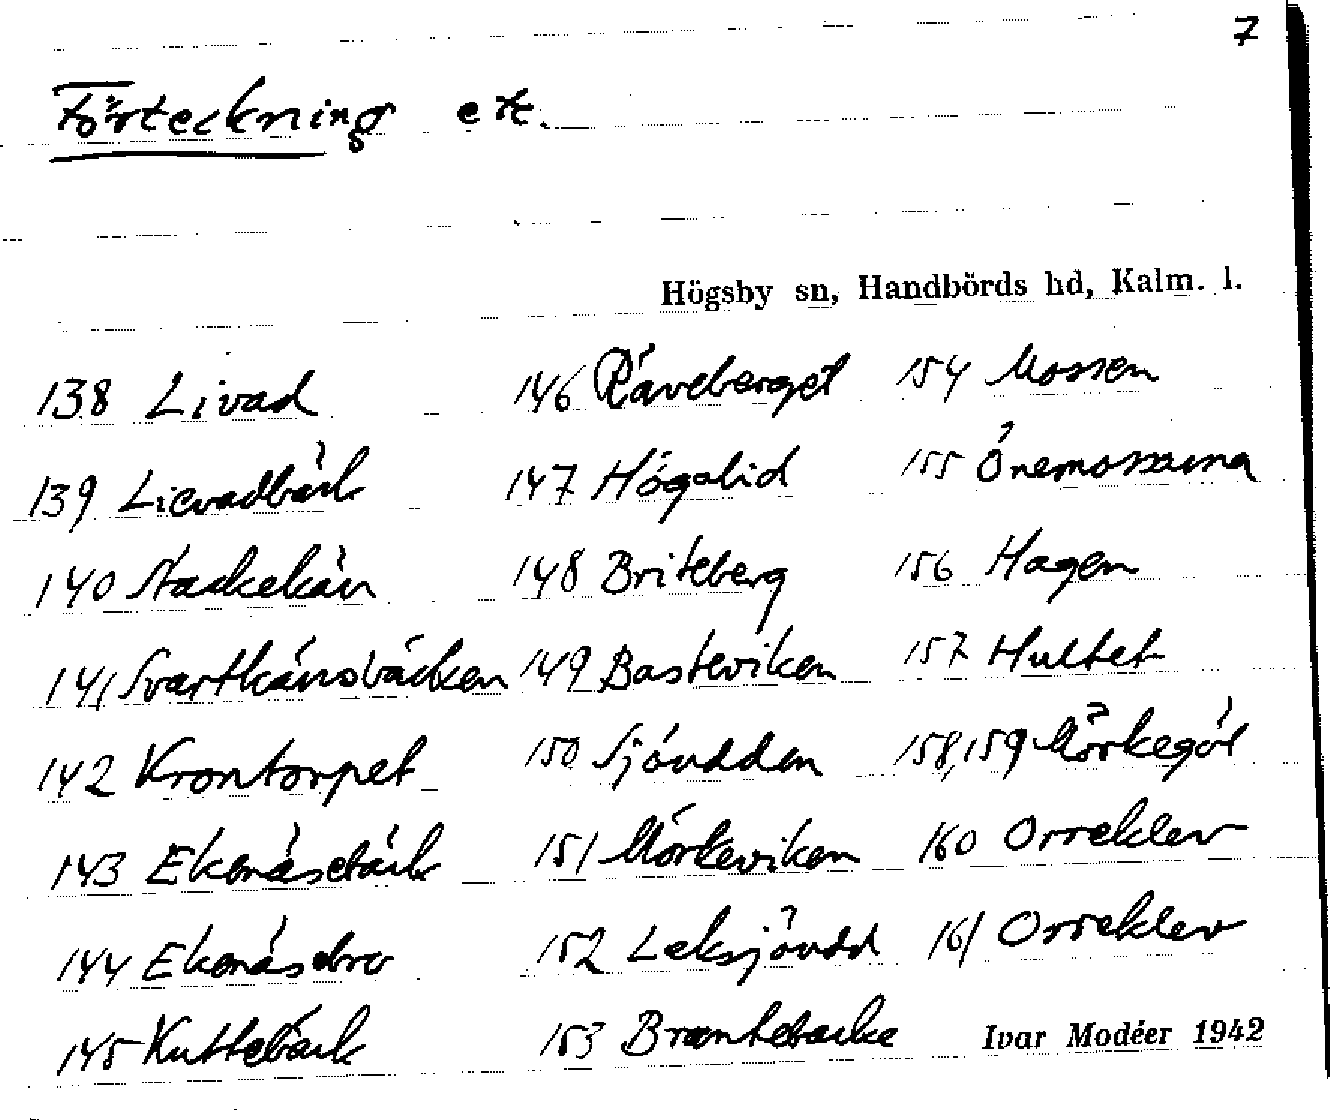 7
Förteckning etc.
Högsby sn, Handbörds hd, Kalm. l.
138 Livad
139 Lievadbäck
140 Stackekärr
141 Svartkärrsbäcken
142 Krontorpet
143 Ekenäsebäck
144 Ekenäsebro
145 Kuttebäck
146 Räveberget
147 Högalid
148 Briteberg
149 Basteviken
150 Sjöudden
151 Mörkeviken
152 Leksjöudd
153 Brantebacke
154 Mossen
155 Önemossarna
156 Hagen
157 Hultet
158, 159 Mörkegöl
160 Orreklev
161 Orreklev
Ivar Modéer 1942